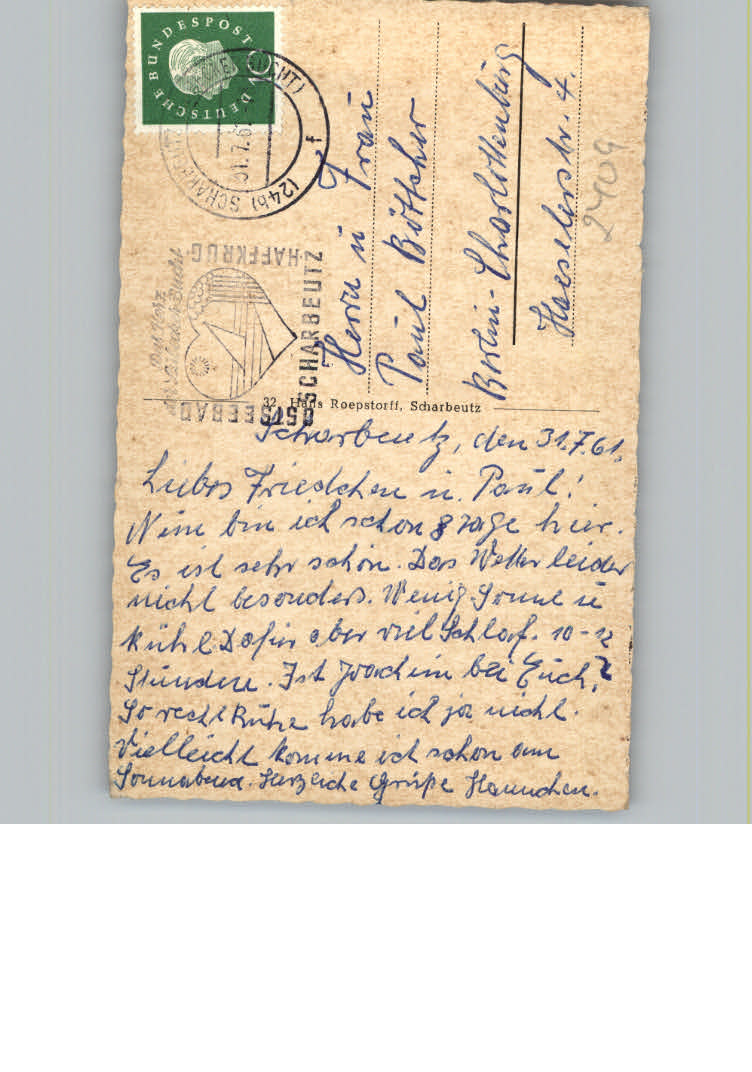 DEUTSCHE BUNDESPOST
10
(24b) SCHARBEUTZ
31.7.61
f
Das Herz
der Lübecker Bucht
OSTSEEBAD
SCHARBEUTZ
HAFFKRUG
Herrn u Frau
Paul Böttcher
Berlin-Charlottenburg
Haeselerstr. 4.
2409
32 Hans Roepstorff, Scharbeutz
Scharbeutz, den 31.7.61.
Liebes Friedchen u. Paul!
Nun bin ich schon 8 Tage hier.
Es ist sehr schön. Das Wetter leider
nicht besonders. Wenig Sonne u
kühl Dafür aber viel Schlaf. 10-12
Stunden. Ist Joachim bei Euch?
So recht Ruhe habe ich ja nicht.
Vielleicht komme ich schon am
Sonnabend. Herzliche Grüße Hannchen.